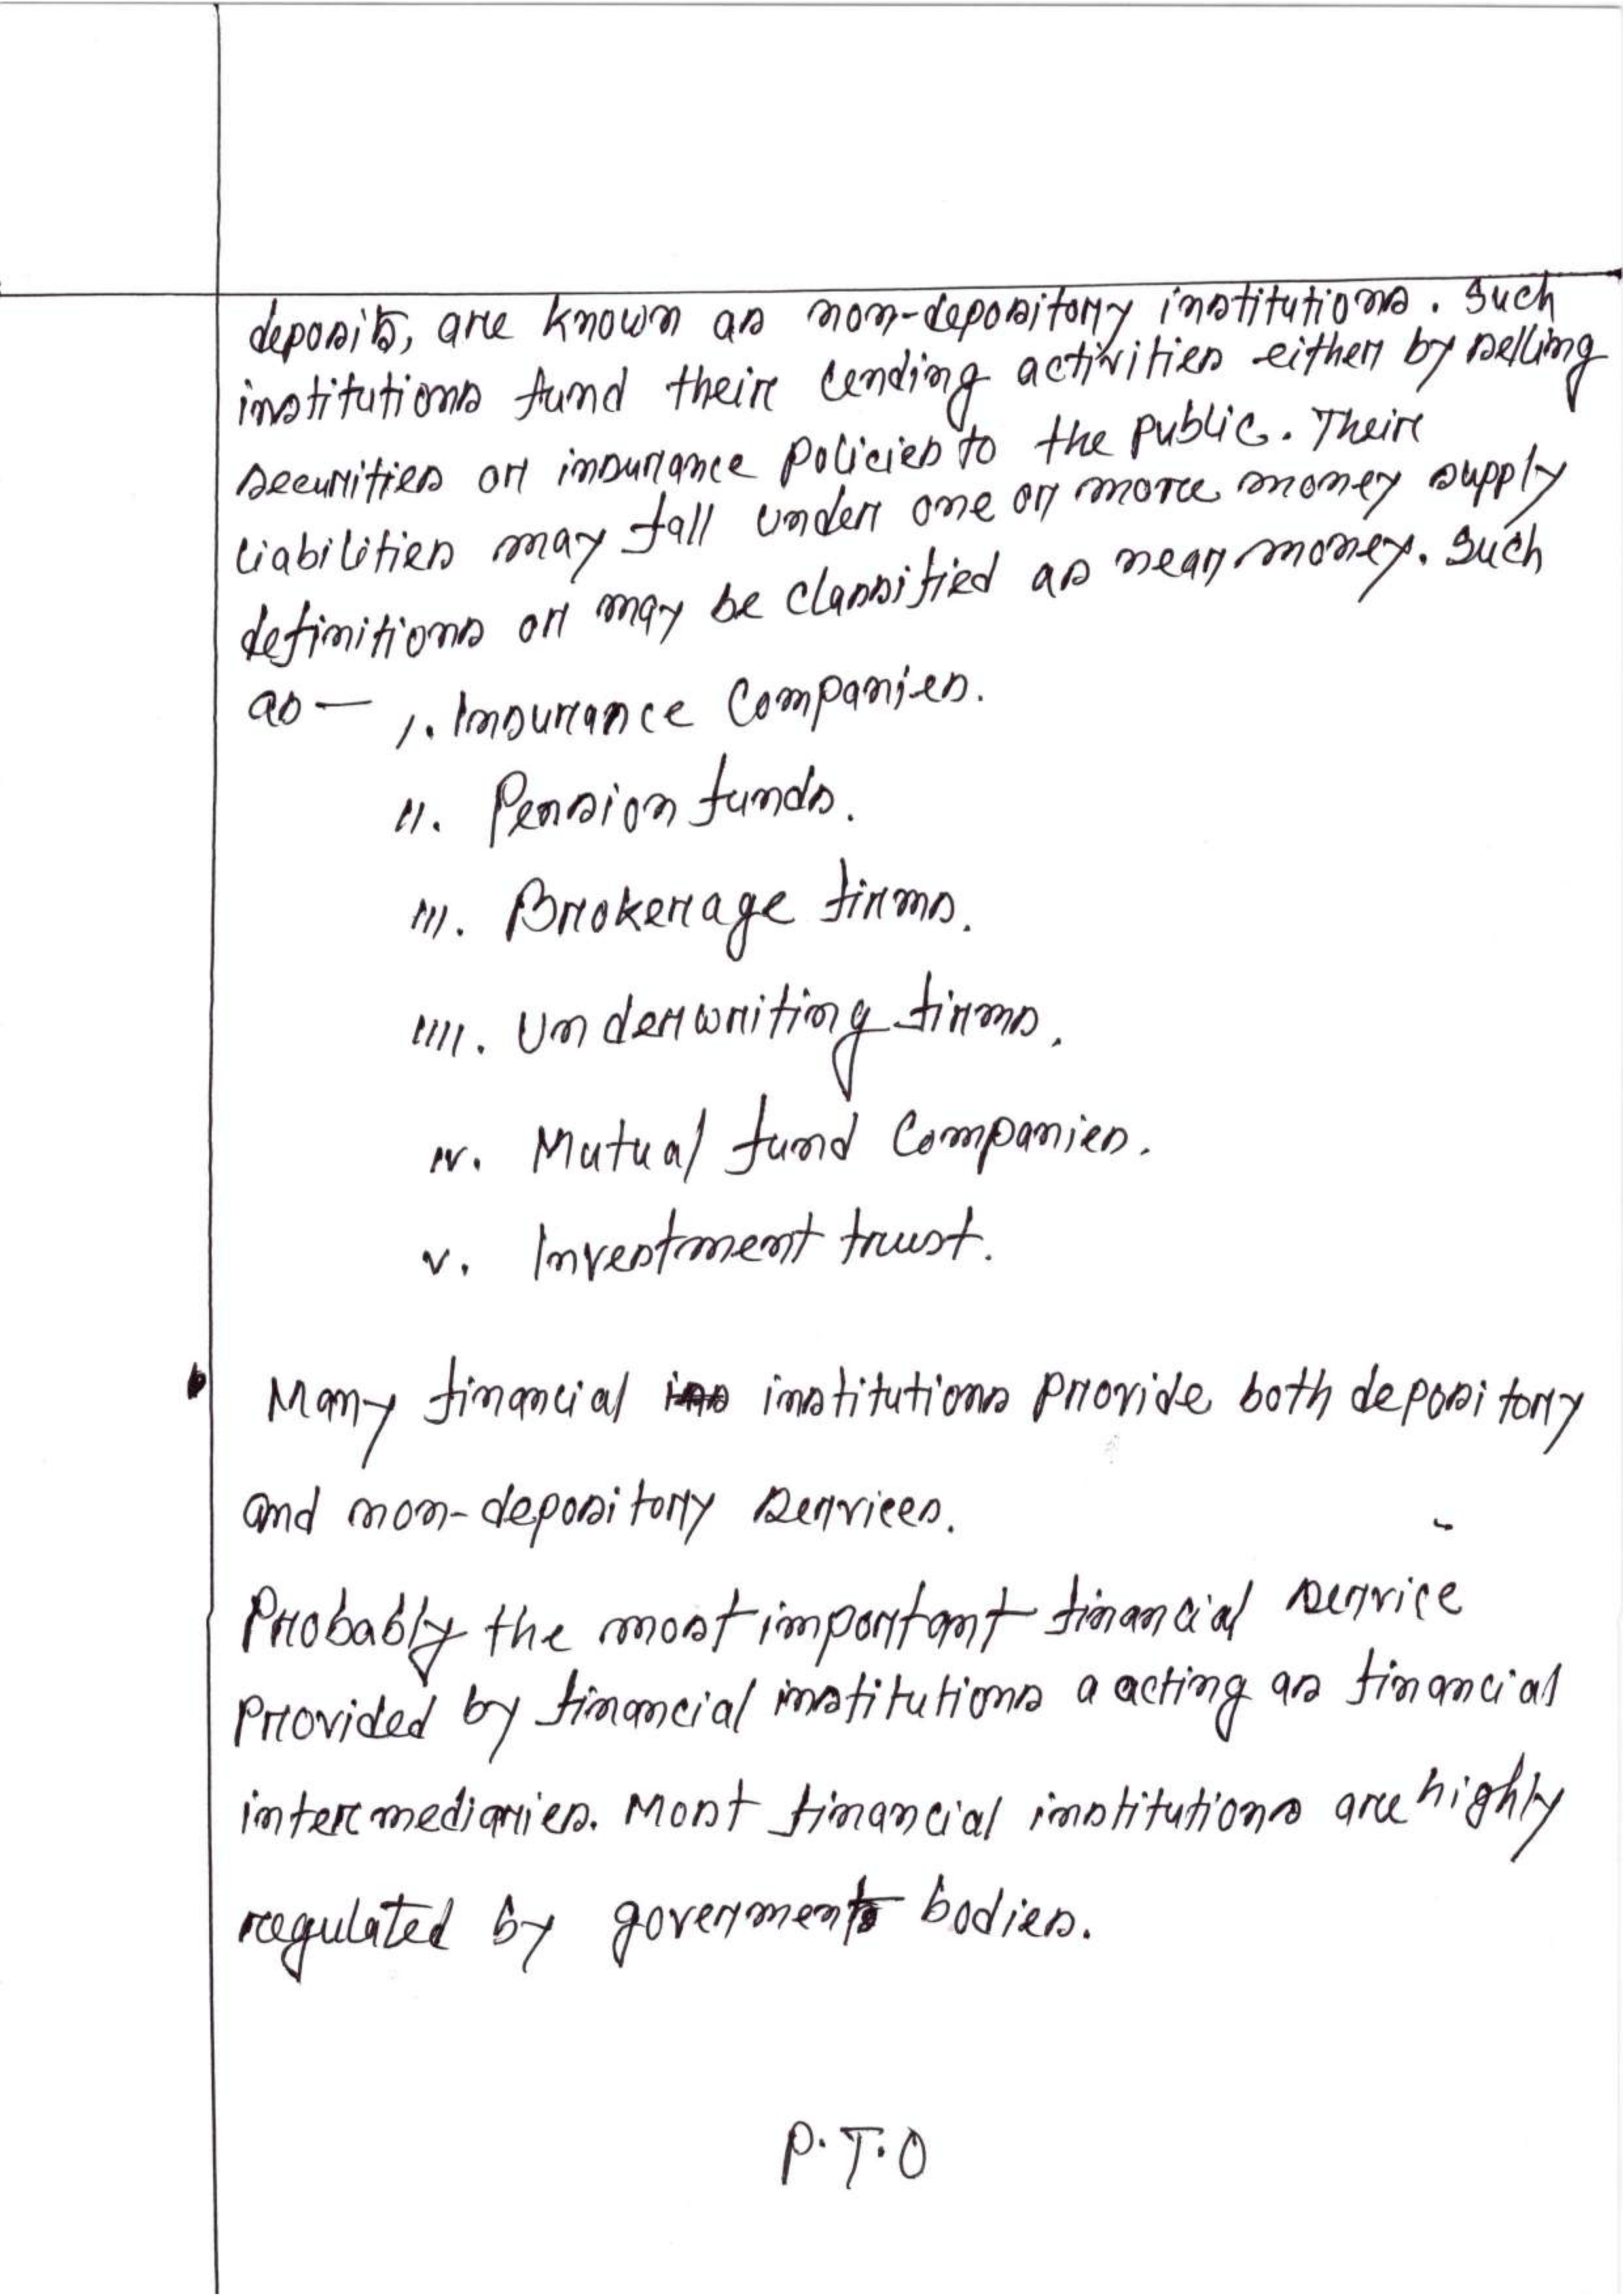 deposits, are known as non-depository institutions. Such
institutions fund their lending activities either by selling
securities or insurance policies to the public. Their
liabilities may fall under one or more money supply
definitions or may be classified as near money. Such
as — I. Insurance Companies.
II. Pension funds.
III. Brokerage firms.
IIII. Underwriting firms.
IV. Mutual fund Companies.
V. Investment trust.
Many financial institutions provide both depository
and non-depository services.
Probably the most important financial service
provided by financial institutions a acting as financial
intermediaries. Most financial institutions are highly
regulated by goverment bodies.
P.T.O